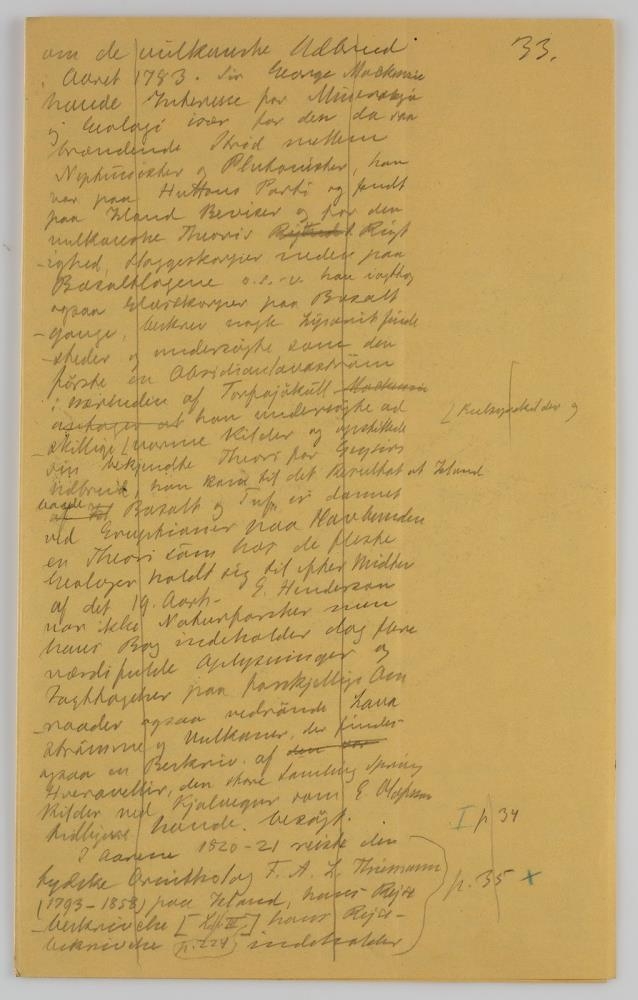 33.
om de vulkanske Udbrud
i Aaret 1783. Sir George Mackenzie
havde Interesse for Mineralogi
og Geologi især for den da saa
brændende Strid mellem
Neptunister og Plutonister, han
var paa Huttons Parti og fandt
paa Island Beviser for den
vulkanske Theoris Rigt
-ighed, Slaggeskorper neden paa
Basaltlagene o.s.v. han iagttog
ogsaa Glasskorper paa Basalt
-gange, beskrev nogle
-steder og undersøgte som den
første en Obsidianlavaström
i nærheden af Torfajökull Mackenzie
han undersøgte ad
-skillige [varme Kilder og opstillede
[Kulsyrekilder og
sin bekjendte Theori for Geysirs
Udbrud, han kom til det Resultat at Island
Basalt og Tuf, er dannet
ved Eruptioner paa Havbunden
en Theori som har de fleste
Geologer holdt sig til efter Midten
af det 19. Aarh. E. Henderson
var ikke Naturforsker men
hans Bog indeholder dog flere
værdifulde Oplysninger og
Iagttagelser paa forskjellige Om
-raader ogsaa vedrörende Lava
strömme og Vulkaner, der findes
ogsaa en Beskriv. af den
Hveravellir, den store Samling Spring
Kilder ved Kjalvegur som E. Olafsson
tidligere havde besøgt.
I p 34
I Aarene 1820-21 reiste den
tydske Ornitholog F. A. L. Thienemann
p. 35 x
(1793-1858) paa Island, hans Rejse
-beskrivelse hans Rejse-
beskrivelse p. 224) indeholder